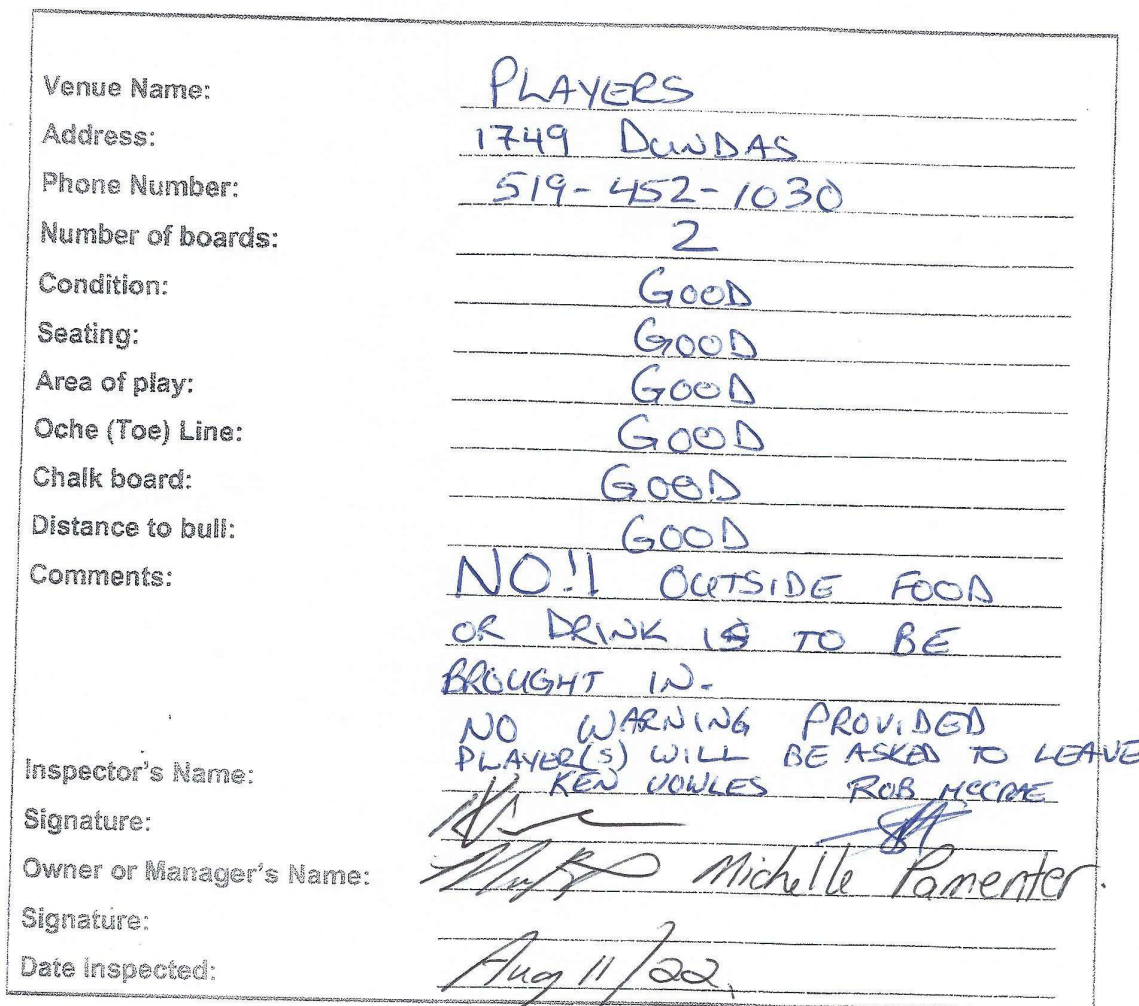 Venue Name: PLAYERS
Address: 1749 DUNDAS
Phone Number: 519-452-1030
Number of boards: 2
Condition: GOOD
Seating: GOOD
Area of play: GOOD
Oche (Toe) Line: GOOD
Chalk board: GOOD
Distance to bull: GOOD
Comments: NO!! OUTSIDE FOOD
OR DRINK IS TO BE
BROUGHT IN.
NO WARNING PROVIDED
PLAYER(S) WILL BE ASKED TO LEAVE
Inspector's Name: KEN VOWLES ROB MCCRAE
Signature:
Owner or Manager's Name: Michelle Pamenter.
Signature:
Date Inspected: Aug 11/22